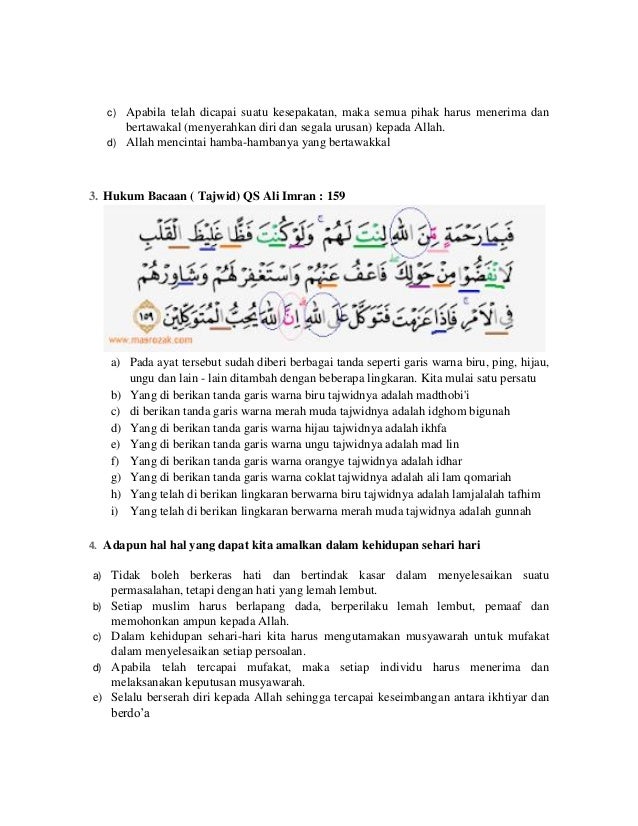 c) Apabila telah dicapai suatu kesepakatan, maka semua pihak harus menerima dan
bertawakal (menyerahkan diri dan segala urusan) kepada Allah.
d) Allah mencintai hamba-hambanya yang bertawakkal
3. Hukum Bacaan ( Tajwid) QS Ali Imran : 159
فَبِمَا رَحْمَةٍ مِّنَ اللّٰهِ لِنْتَ لَهُمْ ۚ وَلَوْ كُنْتَ فَظًّا غَلِيْظَ الْقَلْبِ
لَا نْفَضُّوْا مِنْ حَوْلِكَ ۖ فَاعْفُ عَنْهُمْ وَاسْتَغْفِرْ لَهُمْ وَشَاوِرْهُمْ
فِى الْاَمْرِ ۚ فَاِذَا عَزَمْتَ فَتَوَكَّلْ عَلَى اللّٰهِ ۗ اِنَّ اللّٰهَ يُحِبُّ الْمُتَوَكِّلِيْنَ ١٥٩
www.masrozak.com
a) Pada ayat tersebut sudah diberi berbagai tanda seperti garis warna biru, ping, hijau,
ungu dan lain - lain ditambah dengan beberapa lingkaran. Kita mulai satu persatu
b) Yang di berikan tanda garis warna biru tajwidnya adalah madthobi'i
c) di berikan tanda garis warna merah muda tajwidnya adalah idghom bigunah
d) Yang di berikan tanda garis warna hijau tajwidnya adalah ikhfa
e) Yang di berikan tanda garis warna ungu tajwidnya adalah mad lin
f) Yang di berikan tanda garis warna orangye tajwidnya adalah idhar
g) Yang di berikan tanda garis warna coklat tajwidnya adalah ali lam qomariah
h) Yang telah di berikan lingkaran berwarna biru tajwidnya adalah lamjalalah tafhim
i) Yang telah di berikan lingkaran berwarna merah muda tajwidnya adalah gunnah
4. Adapun hal hal yang dapat kita amalkan dalam kehidupan sehari hari
a) Tidak boleh berkeras hati dan bertindak kasar dalam menyelesaikan suatu
permasalahan, tetapi dengan hati yang lemah lembut.
b) Setiap muslim harus berlapang dada, berperilaku lemah lembut, pemaaf dan
memohonkan ampun kepada Allah.
c) Dalam kehidupan sehari-hari kita harus mengutamakan musyawarah untuk mufakat
dalam menyelesaikan setiap persoalan.
d) Apabila telah tercapai mufakat, maka setiap individu harus menerima dan
melaksanakan keputusan musyawarah.
e) Selalu berserah diri kepada Allah sehingga tercapai keseimbangan antara ikhtiyar dan
berdo’a